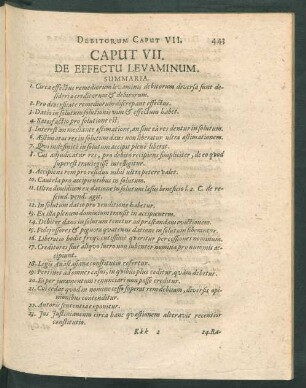 DEBITORUM CAPUT VII. 443
CAPUT VII.
DE EFFECTU LEVAMINUM.
SUMMARIA.
1. Circa effectus remediorum levaminis debitorum diversa sunt de-
sideria creditorum & debitorum.
2. Pro diversitate remediorum discrepant effectus.
3. Datio in solutum solutionis vim & effectum habet.
4. Satisfactio pro solutione est.
5. Interest an mediante æstimatione, an sine ea res dentur in solutum.
6. Æstimatione rei in solutum datæ non liberatur ultra æstimationem.
7. Qui indefinitè in solutum accipit plenè liberat.
8. Cui adjudicatur res, pro debito recipiens simpliciter, de eo quod
superest transegisse intelligitur.
9. Accipiens rem pro residuo nihil ultra petere valet.
10. Cautela pro accipientibus in solutum.
11. Ultra dimidium ex datione in solutum læsus beneficio l. 2. C. de re-
scind. vend. agit.
12. In solutum datio pro venditione habetur.
13. Ex illa post dominium transit in accipientem.
14. Debitor dans in solutum tenetur ad præstandam evictionem.
15. Fidejussores & pignora quatenus datione in solutum liberentur.
16. Liberatio hodie frequentissimè quæritur per cessiones nominum.
17. Creditores suos aliquos lucrum sentientes nomina pro nominis ac-
cipiant.
18. Legis Anastasianæ constitutio refertur.
19. Pertinet ad omnes casus, in quibus plus ceditur, quàm debetur.
20. Ea per juramentum renunciari non posse creditur.
21. Cui cedat quod in nomine cesso superat rem debitam, diversis opi-
nionibus contenditur.
22. Autoris sententia exponitur.
23. Jus Justinianum circa hanc quæstionem alteravit recentior
constitutio.
Kkk 2 24. Ra-